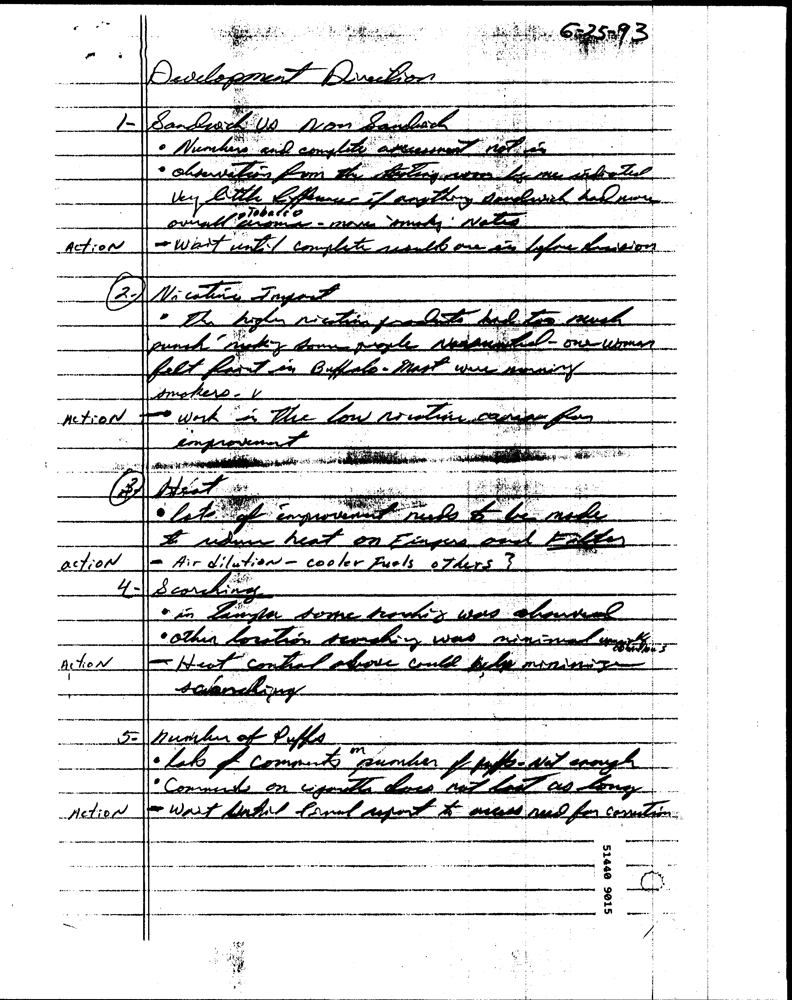 6-25-93
Development Direction
1- Sandwich VS Non Sandwich
• Numbers and complete assessment not in
• observations from the testing room by me indicated
very little difference if anything sandwich had more
overall tobacco aroma - more "smoky" notes
Action - Wait until complete results are in before decision
2. Nicotine Impact
• The higher nicotine products had too much
punch making some people - one woman
felt faint in Buffalo. Most were morning
smokers.
Action - work in the low nicotine for
improvement
3. Heat
• lots of improvement needs to be made
to reduce heat on Fingers and Filter
action - Air dilution - cooler Fuels others?
4- Scorching
• in Tampa some scorching was observed
• other location scorching was minimal
Action - Heat control above could help minimize
scorching
5- Number of Puffs
• Lots of comments on number of puffs - not enough
• Comments on cigarette does not last as long
Action - Wait until final report to assess need for correction
51440 9015